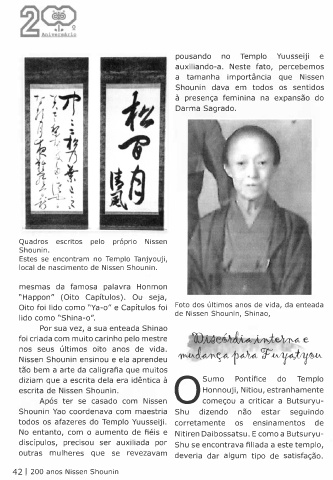 200
Aniversário
Quadros escritos pelo próprio Nissen
Shounin.
Estes se encontram no Templo Tanjyouji,
local de nascimento de Nissen Shounin.
mesmas da famosa palavra Honmon
"Happon" (Oito Capítulos). Ou seja,
Oito foi lido como "Ya-o" e Capítulos foi
lido como "Shina-o".
Por sua vez, a sua enteada Shinao
foi criada com muito carinho pelo mestre
nos seus últimos oito anos de vida.
Nissen Shounin ensinou e ela aprendeu
tão bem a arte da caligrafia que muitos
diziam que a escrita dela era idêntica à
escrita de Nissen Shounin.
Após ter se casado com Nissen
Shounin Yao coordenava com maestria
todos os afazeres do Templo Yuusseiji.
No entanto, com o aumento de fiéis e
discípulos, precisou ser auxiliada por
outras mulheres que se revezavam
pousando no Templo Yuusseiji e
auxiliando-a. Neste fato, percebemos
a tamanha importância que Nissen
Shounin dava em todos os sentidos
à presença feminina na expansão do
Darma Sagrado.
Foto dos últimos anos de vida, da enteada
de Nissen Shounin, Shinao,
Discórdia interna e
mudança para Fuyatyou
O Sumo Pontífice do Templo
Honnouji, Nitiou, estranhamente
começou a criticar a Butsuryu-
Shu dizendo não estar seguindo
corretamente os ensinamentos de
Nitiren Daibossatsu. E como a Butsuryu-
Shu se encontrava filiada a este templo,
deveria dar algum tipo de satisfação.
42 | 200 anos Nissen Shounin